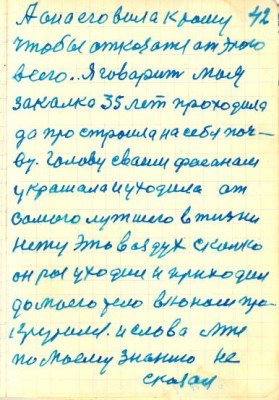 А она его вила к рошу 42
чтобы отказатся от этого
всего.. Я говорит моя
закалка 35 лет проходила
да простроила на себя поч-
ву. Голову своим фасанам
украшала и уходила от
самого лутшего в жизни
нету это воздух сколко
он рас уходил и приходил
до моего тело в юном про-
и слова мне
по моему знанию не
сказал